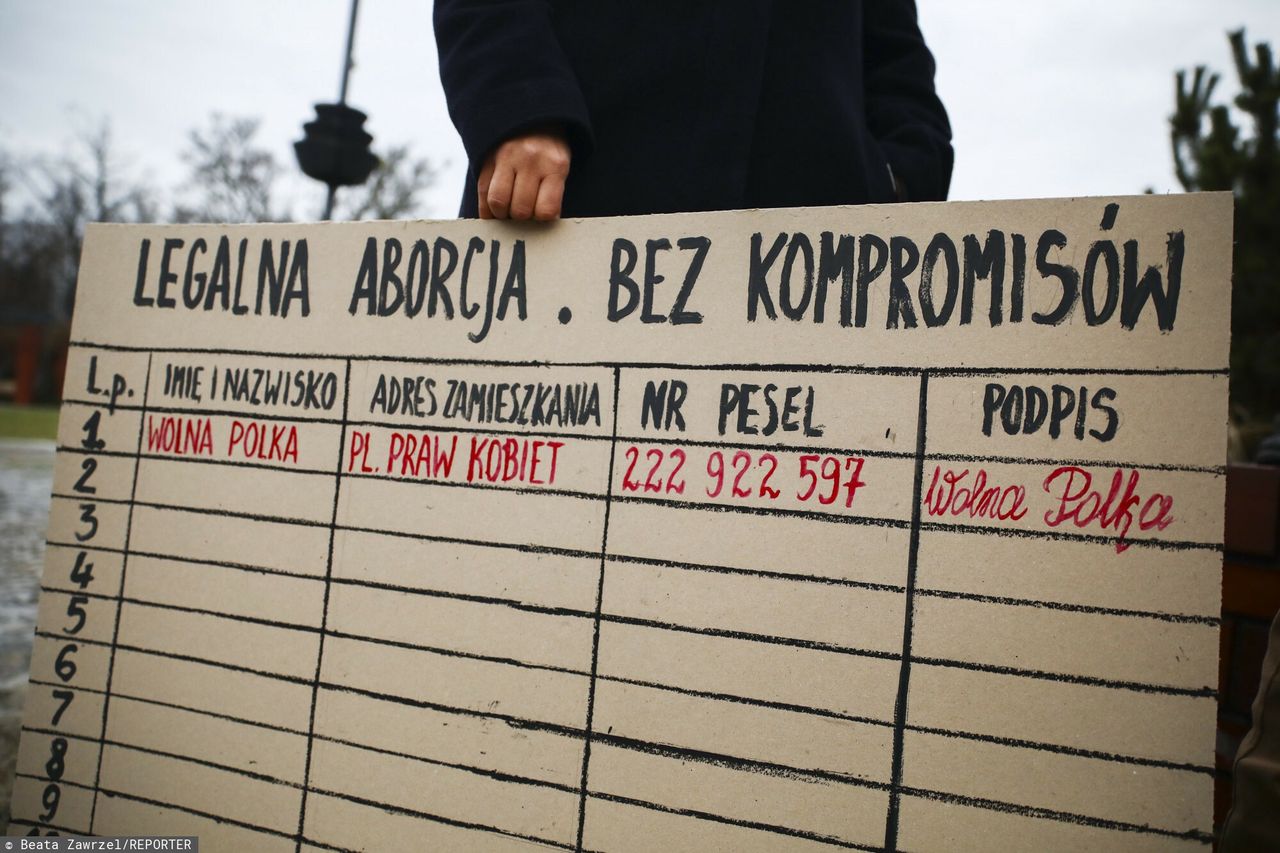 LEGALNA ABORCJA. BEZ KOMPROMISÓW
L.p. IMIĘ I NAZWISKO ADRES ZAMIESZKANIA NR PESEL PODPIS
1. WOLNA POLKA PL. PRAW KOBIET 222 922 597 Wolna Polka
2
3
4
5
6
7
8
9
10
© Beata Zawrzel/REPORTER